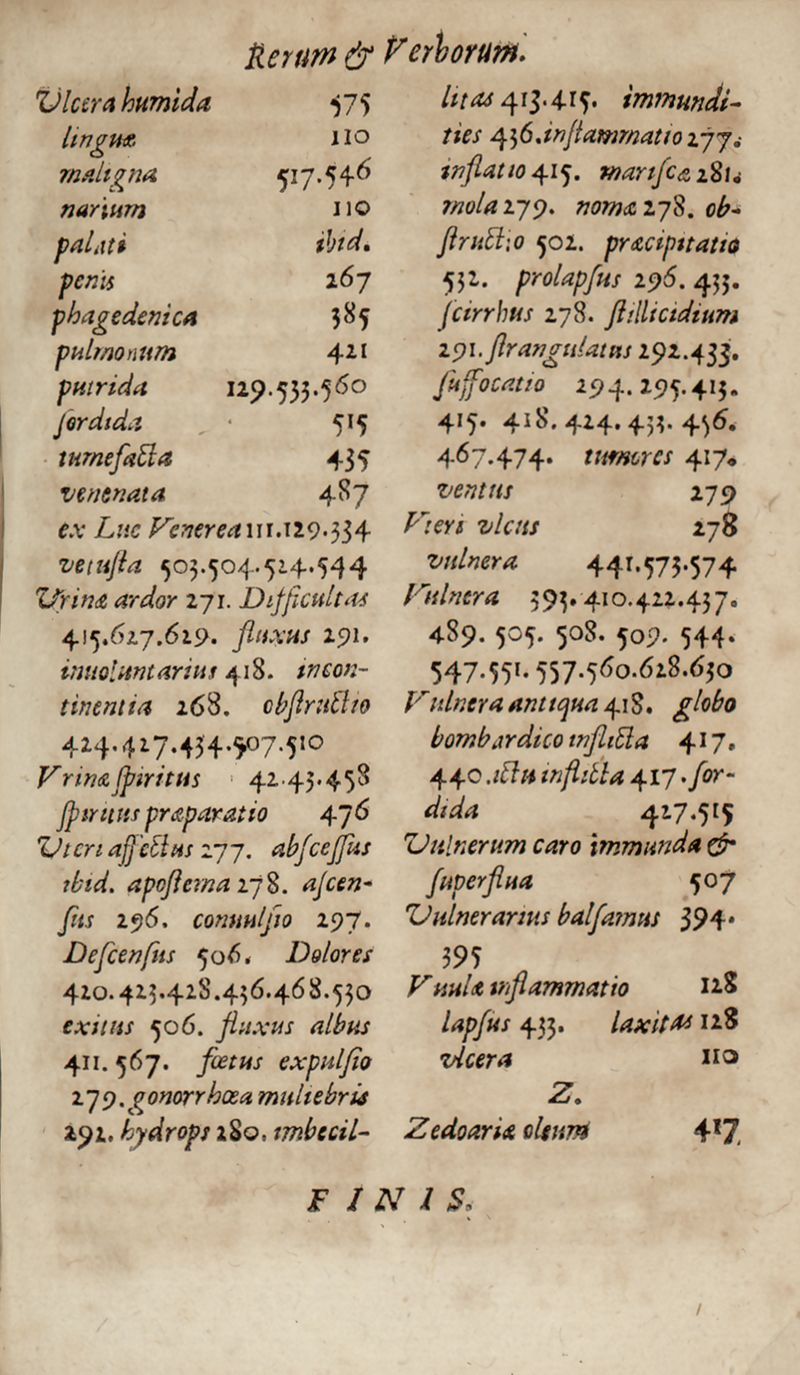 Rerum & Verborum.
Vlcera humida 575
linguæ 110
maligna 517.546
narium 110
palati ibid.
penis 267
phagedenica 385
pulmonum 421
putrida 129.533.560
ſordida 515
tumefacta 435
venenata 487
ex Lue Venerea 111.129.334
vetuſta 503.504.524.544
Vrinæ ardor 271. Difficultas
415.627.629. fluxus 291.
inuoluntarius 418. incon-
tinentia 268. obſtructio
424.427.434.507.510
Vrinæ ſpiritus 42.43.458
ſpiritus præparatio 476
Vteri affectus 277. abſceſſus
ibid. apoſtema 278. aſcen-
ſus 296. conuulſio 297.
Deſcenſus 506. Dolores
420.423.428.436.468.530
exitus 506. fluxus albus
411.567. fœtus expulſio
279. gonorrhœa muliebris
292. hydrops 280. imbecil-
litas 413.415. immundi-
ties 436. inflammatio 277.
inflatio 415. mariſcæ 281.
mola 279. nomæ 278. ob-
ſtructio 502. præcipitatio
532. prolapſus 296. 433.
ſcirrhus 278. ſtillicidium
291. ſtrangulatus 292.433.
ſuffocatio 294.295.413.
415. 418. 424. 433. 456.
467.474. tumores 417.
ventus 279
Vteri vlcus 278
vulnera 441.573.574
Vulnera 393.410.422.437.
489. 505. 508. 509. 544.
547.551.557.560.628.630
Vulnera antiqua 418. globo
bombardico inflicta 417.
440. ictu inflicta 417. ſor-
dida 427.515
Vulnerum caro immunda &
ſuperflua 507
Vulnerarius balſamus 394.
395
Vuulæ inflammatio 128
lapſus 433. laxitas 128
vlcera 110
Z.
Zedoariæ oleum 417
F I N I S.